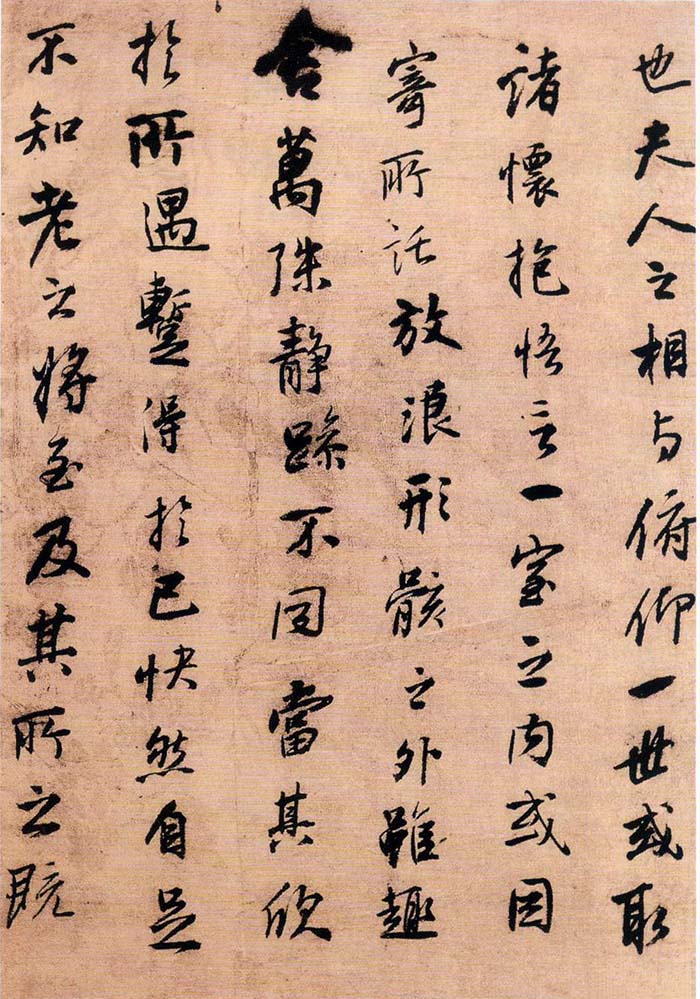 也夫人之相与俯仰一世或取
諸懷抱悟言一室之内或因
寄所託放浪形骸之外雖趣
舍萬殊静躁不同當其欣
於所遇暫得於己快然自足
不知老之將至及其所之既